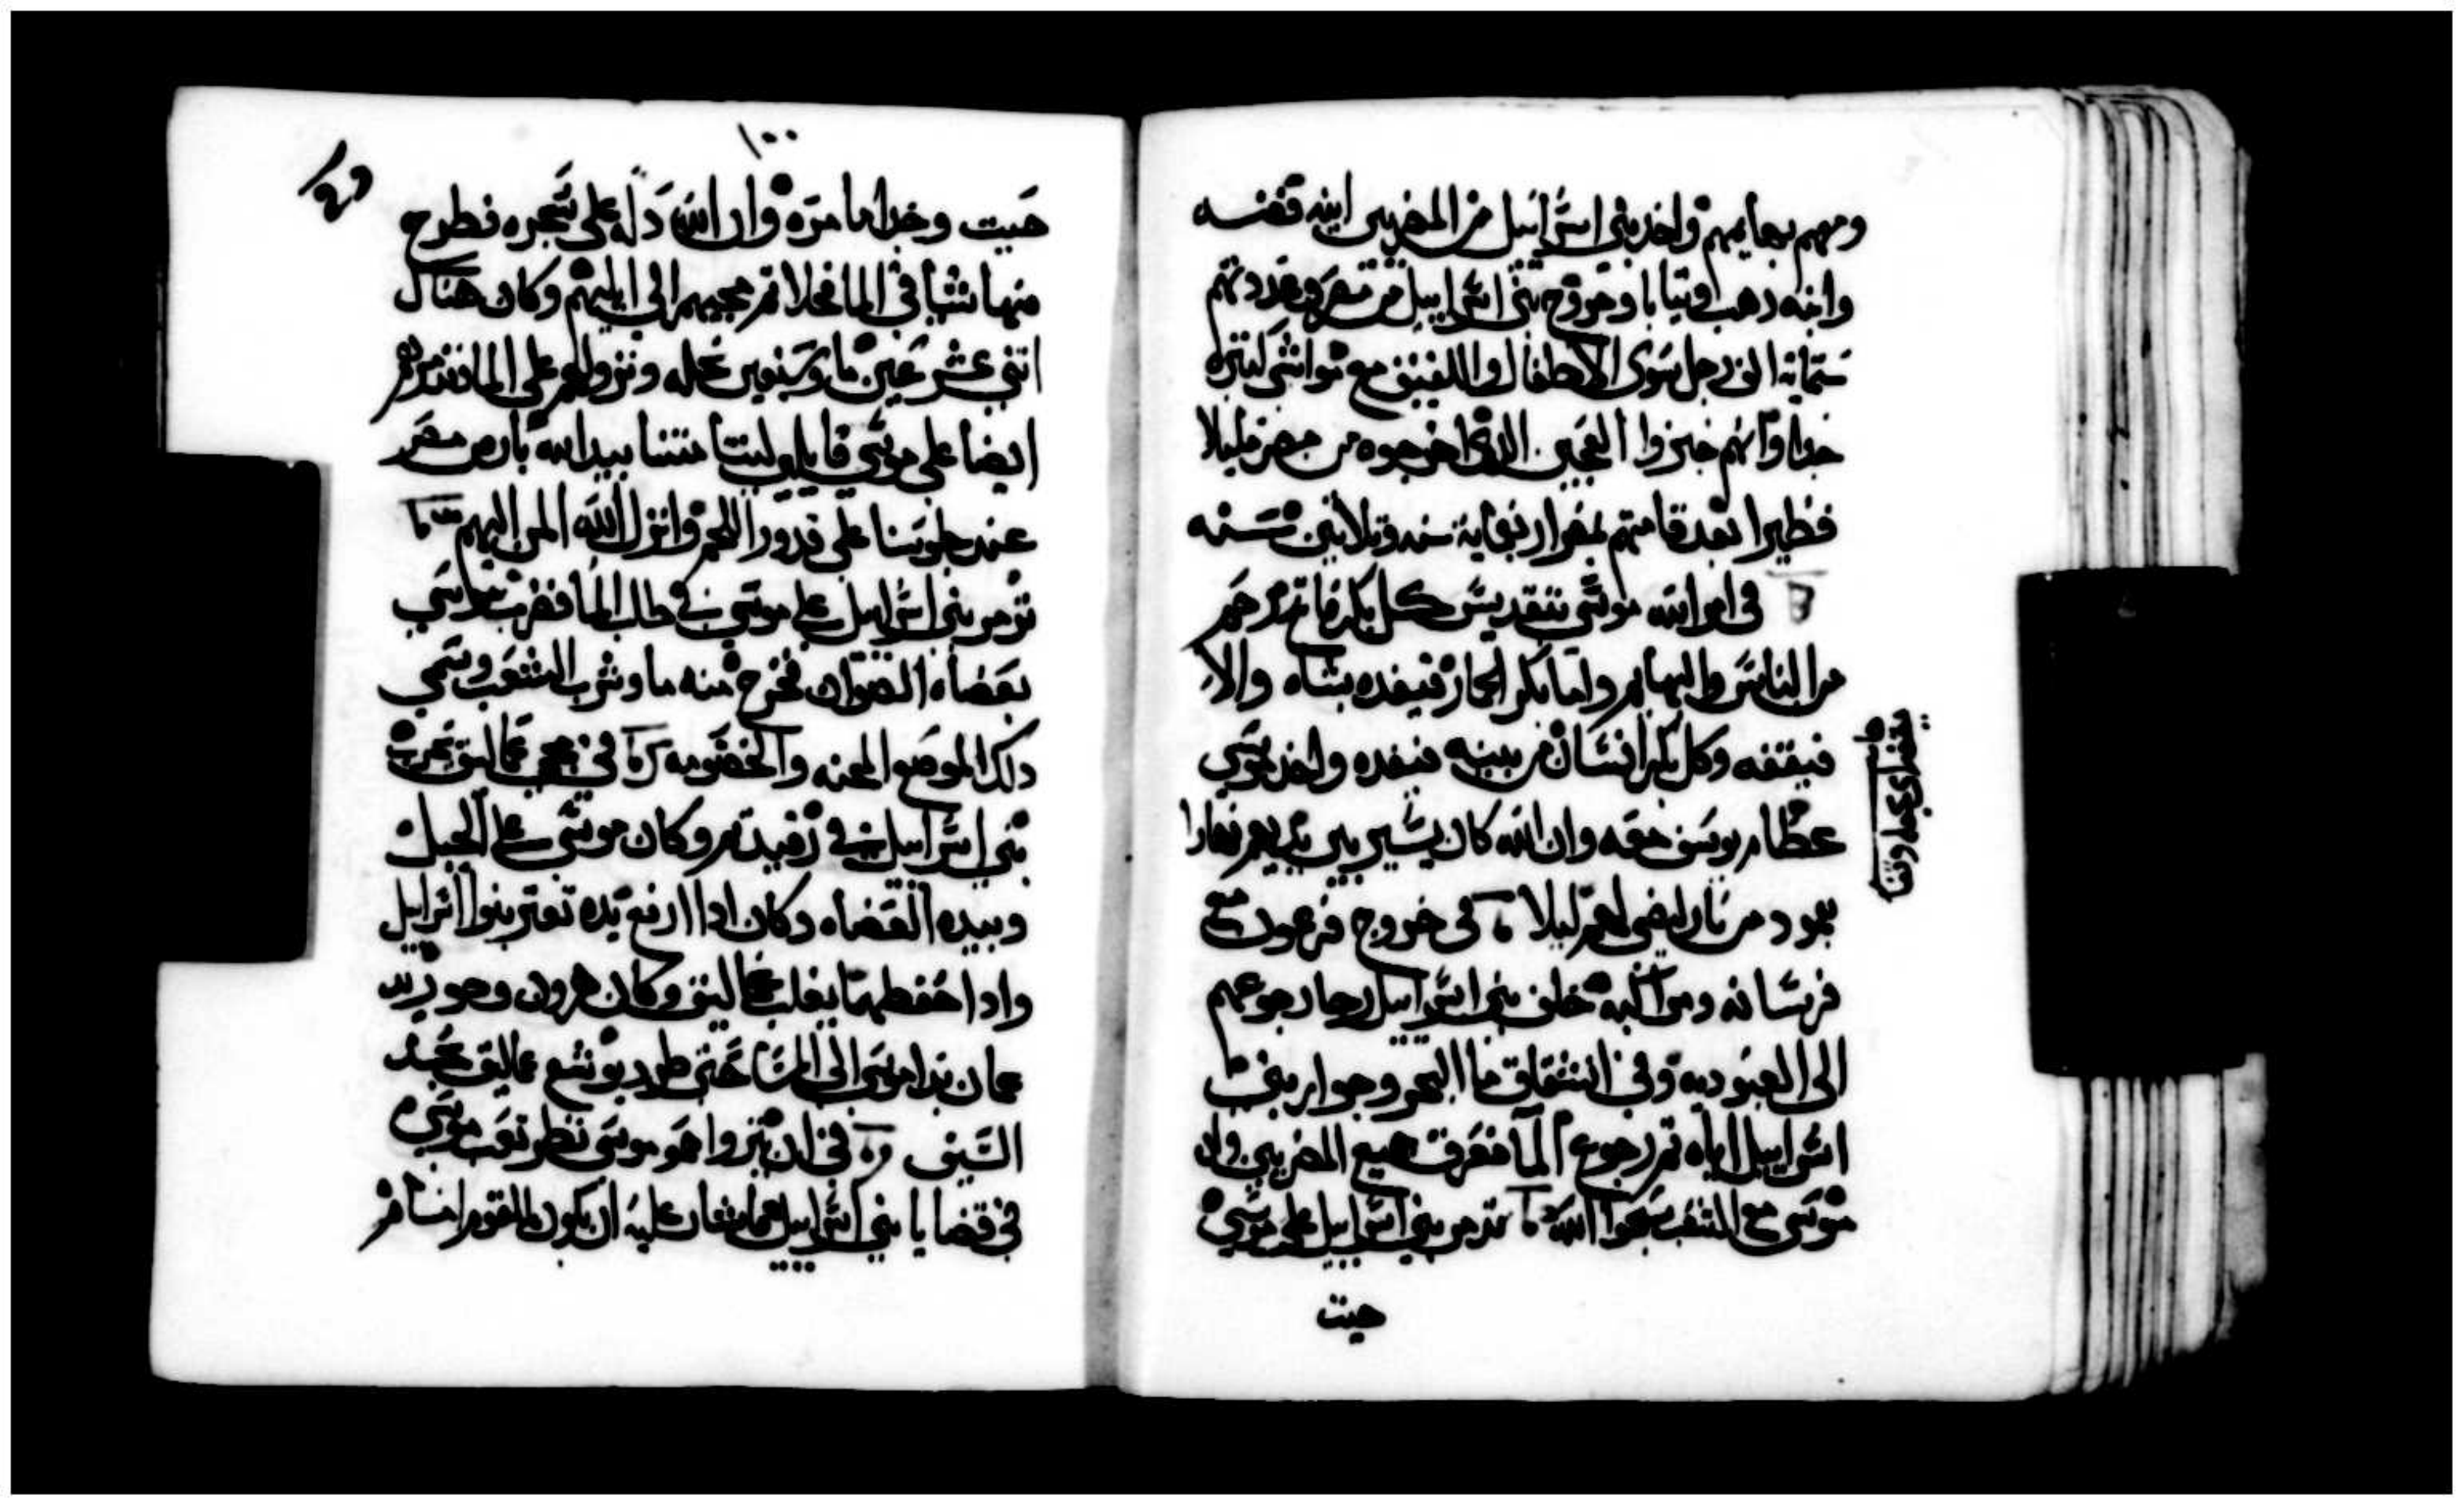 ومهم بهايمهم واخد بني اسراييل من المصريين انيه فضه
وانيه دهب وتيابا وخروج بني اسراييل من مصر وعددتهم
ستماية الف رجل سوى الاطفال واللفيف مع مواشي كتيره
جدا وانهم خبزوا العجين الدي اخرجوه من مصر مليلا
فطيرا بعد قامتهم بمصر اربعماية سنه وتلاتين سنه
في امر الله موسي بتقديس كل بكر فاتح رحم
من الناس والبهايم واما بكر الحمار فيفده بشاه والا
فيقفه وكل بكر انسان من بنيه فيفده واخد موسي
عظام يوسف معه وان الله كان يسير بين يديهم نهارا
بعمود من نار ليضي لهم ليلا في خروج فرعون مع
فرسانه ومراكبه خلف بني اسراييل رجا رجوعهم
الى العبوديه وفي انشقاق ما البحر وجواز بني
اسراييل اياه تم رجوع الما فغرق جميع المصريين وان
موسى مع الشعب سبحوا الله تدمر بني اسراييل على موسي
حيت
١٠٠
حيت وجدا ما مره وان الله دله على شجره فطرح
منها شيا في الما فحلا تم مجيهم الى ايليم وكان هناك
اتني عشر عين ما وسبعين نخله ونزولهم على الما وتدمرهم
ايضا على موسي قايلين ليتنا متنا بيد الله بارض مصر
عند جلوسنا على قدور اللحم وانزل الله المن اليهم
تدمر بني اسراييل على موسي في طلب الما فضرب موسي
بعضاه الصوان فخرج منه ما وشرب الشعب وسمي
دلك الموضع المحنه والخصومه في مجي عماليق لحرب
بني اسراييل في رفيديم وكان موسي على الجبل
وبيده القضاه وكان ادا ارفع يده تعتز بنوا اسراييل
وادا خفظهما يغلب عماليق وكان هرون وحور
عمان يدا موسي الى المسا حتى طرد يوشع عماليق بحد
السيف في ان يتروا حمو موسى نظر تعب موسى
في قضايا بني اسراييل فاشار عليه ان يكون للقوم